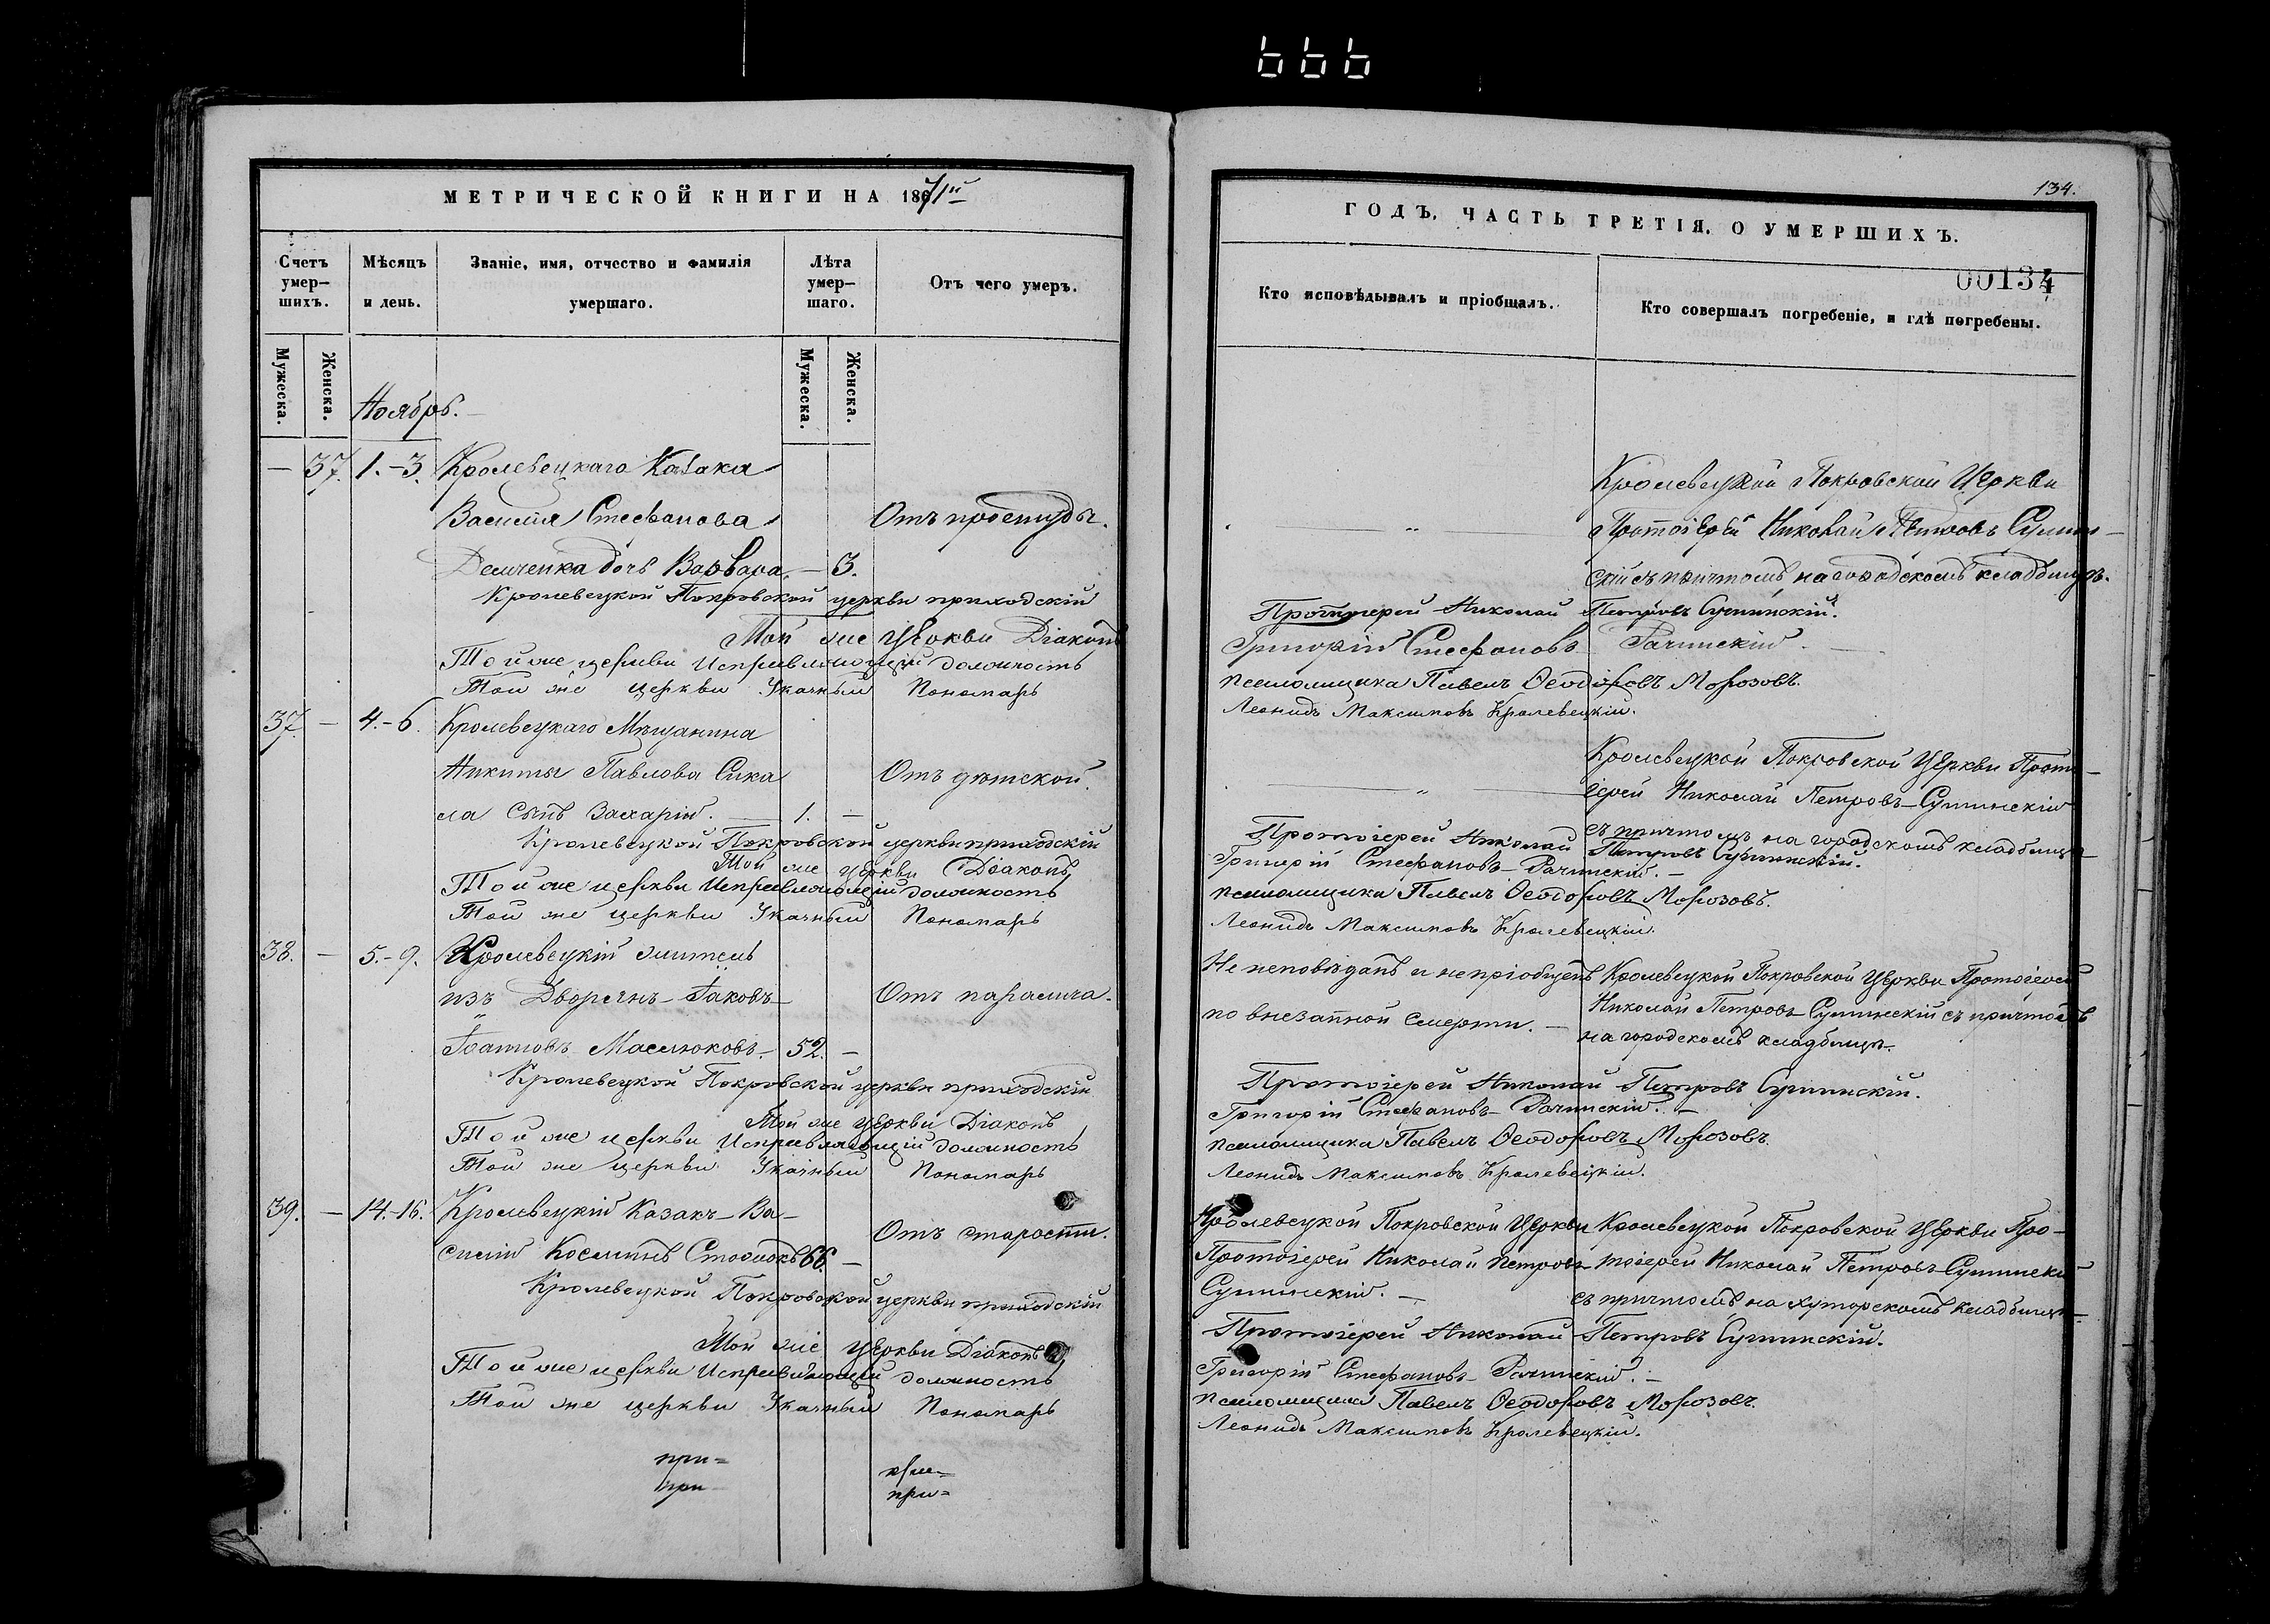 666
МЕТРИЧЕСКОЙ КНИГИ НА 1871й
Счетъ умер-шихъ.
Мѣсяцъ и день.
Званіе, имя, отчество и фамилія умершаго.
Лѣта умер-шаго.
Отъ чего умеръ.
Мужеска.
Женска.
Мужеска.
Женска.
Ноябрь.
— 37. 1.-3. Кролевецкаго Казака
Василія Стефанова Отъ простуды.
Демченка дочь Варвара. — 3.
Кролевецкой Покровской церкви приходскій
Той же Церкви Діаконъ
Той же церкви Исправляющій должность
Той же церкви Указный Пономарь
37. — 4.-6. Кролевецкаго Мѣщанина
Никиты Павлова Сика Отъ дѣтской.
ла сынъ Захарій. — 1. —
Кролевецкой Покровской церкви приходскій
Той же церкви Діаконъ
Той же церкви Исправляющій должность
Той же церкви Указный Пономарь
38. — 5.-9. Кролевецкій житель
изъ Дворянъ Іаковъ Отъ паралича.
Іоанновъ Маслюковъ. 52. —
Кролевецкой Покровской церкви приходскій
Той же Церкви Діаконъ
Той же церкви Исправляющій должность
Той же церкви Указный Пономарь
39. — 14.-16. Кролевецкій Казакъ Ва-
Отъ старости.
силій Косминъ 66. —
Кролевецкой Покровской церкви приходскій
Той же Церкви Діаконъ
Той же церкви Исправляющій должность
Той же церкви Указный Пономарь
при= при=
при при=
134.
ГОДЪ. ЧАСТЬ ТРЕТІЯ. О УМЕРШИХЪ.
00134
Кто исповѣдывалъ и пріобщалъ.
Кто совершалъ погребеніе, и гдѣ погребены.
Кролевецкой Покровской Церкви
Протоіерей Николай Петровъ Сумин-
скій съ причтомъ на городскомъ кладбищѣ.
Протоіерей Николай Петровъ Суминскій.
Григорій Стефановъ Рачинскій. —
псаломщика Павелъ Ѳеодоровъ Морозовъ.
Леонидъ Максимовъ Кролевецкій.
Кролевецкой Покровской Церкви Прото-
іерей Николай Петровъ Суминскій
съ причтомъ на городскомъ кладбищѣ
Протоіерей Николай Петровъ Суминскій.
Григорій Стефановъ Рачинскій. —
псаломщика Павелъ Ѳеодоровъ Морозовъ.
Леонидъ Максимовъ Кролевецкій.
Не исповѣданъ и не пріобщенъ Кролевецкой Покровской Церкви Протоіерей
по внезапной смерти. — Николай Петровъ Суминскій съ причтомъ
на городскомъ кладбищѣ.
Протоіерей Николай Петровъ Суминскій.
Григорій Стефановъ Рачинскій. —
псаломщика Павелъ Ѳеодоровъ Морозовъ.
Леонидъ Максимовъ Кролевецкій.
Кролевецкой Покровской Церкви Кролевецкой Покровской Церкви Про-
Протоіерей Николай Петровъ тоіерей Николай Петровъ Суминскій
Суминскій. — съ причтомъ на хуторскомъ кладбищѣ
Протоіерей Николай Петровъ Суминскій.
Григорій Стефановъ Рачинскій. —
псаломщика Павелъ Ѳеодоровъ Морозовъ.
Леонидъ Максимовъ Кролевецкій.